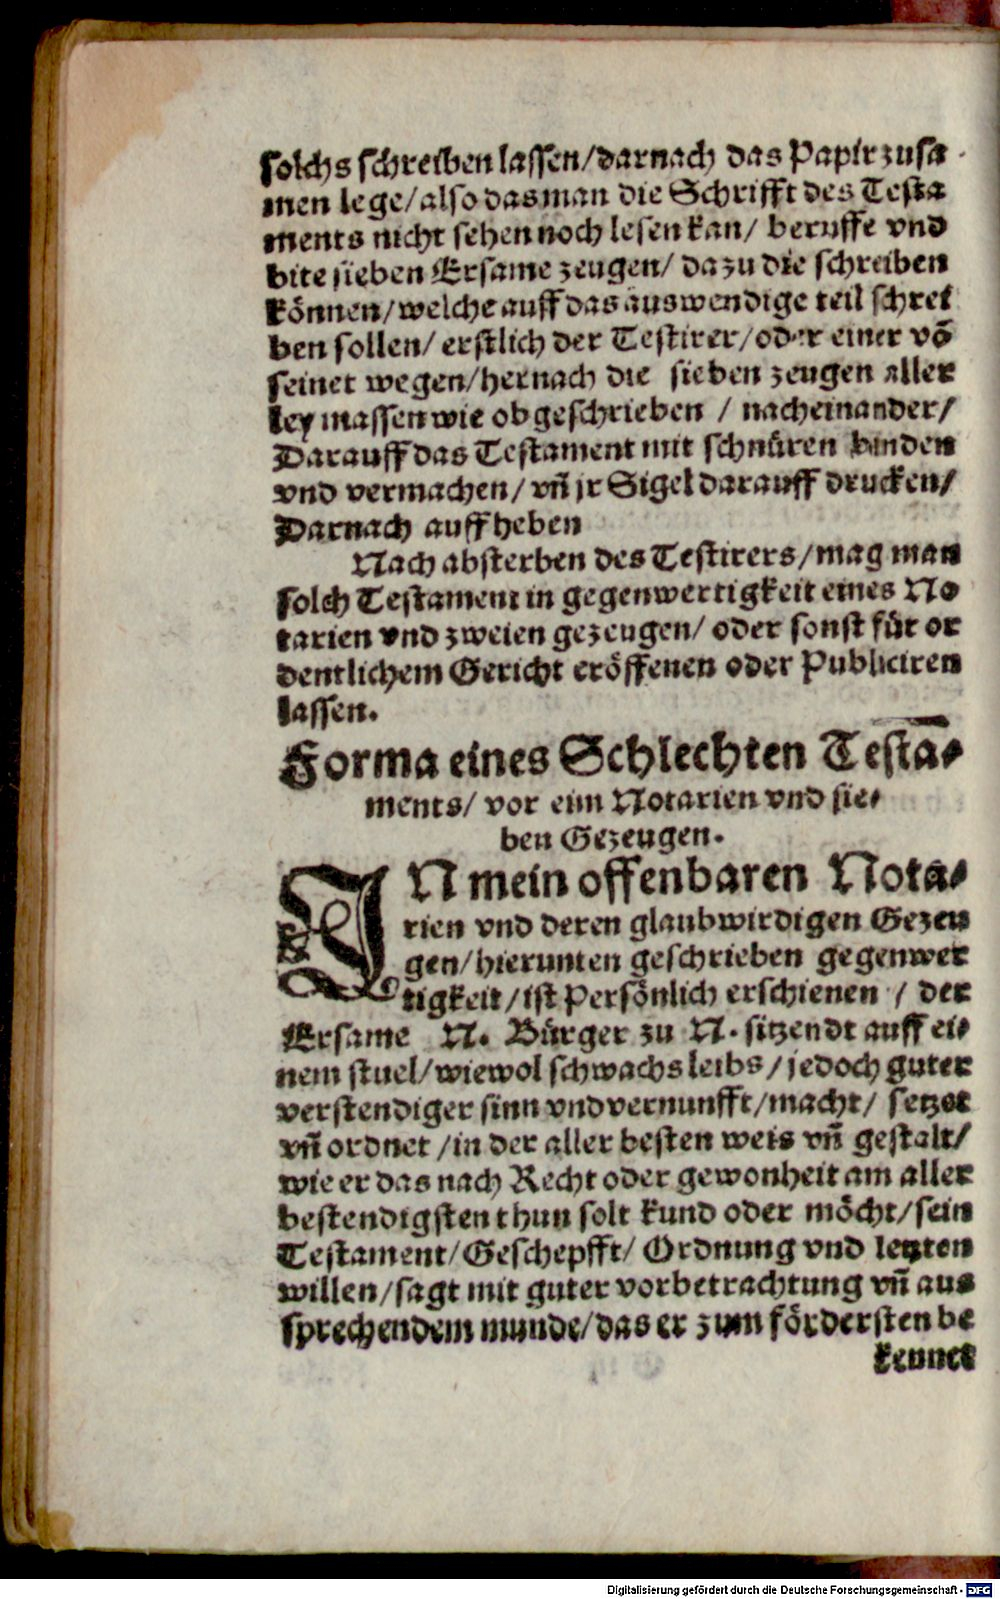 solchs schreiben lassen/darnach das Papir zusa
men lege/also das man die Schrifft des Testa
ments nicht sehen noch lesen kan/ beruffe vnd
bite sieben Ersame zeugen/ da zu die schreiben
können/welche auff das auswendige teil schrei
ben sollen/ erstlich der Testirer/oder einer võ
seinet wegen/hernach die sieben zeugen aller
ley massen wie obgeschrieben / nacheinander/
Darauff das Testament mit schnüren binden
vnd vermachen/ vñ jr Sigel darauff drucken/
Darnach auffheben
Nach absterben des Testirers/mag man
solch Testament in gegenwertigkeit eines No
tarien vnd zweien gezeugen/ oder sonst für or
dentlichem Gericht eröffenen oder Publiciren
lassen.
Forma eines Schlechten Testa-
ments/ vor eim Notarien vnd sie-
ben Gezeugen.
IN mein offenbaren Nota-
rien vnd deren glaubwirdigen Gezeu
gen/hierunten geschrieben gegenwer
tigkeit/ist Persönlich erschienen / der
Ersame N. Bürger zu N. sitzendt auff ei-
nem stuel/wiewol schwachs leibs/jedoch guter
verstendiger sinn vnd vernunfft/macht/ setzet
vñ ordnet/in der aller besten weis vñ gestalt/
wie er das nach Recht oder gewonheit am aller
bestendigsten thun solt kund oder möcht/sein
Testament/Geschepfft/ Ordnung vnd letzten
willen/sagt mit guter vorbetrachtung vñ aus
sprechendem munde/das er zum fördersten be
kennet
Digitalisierung gefördert durch die Deutsche Forschungsgemeinschaft - DFG